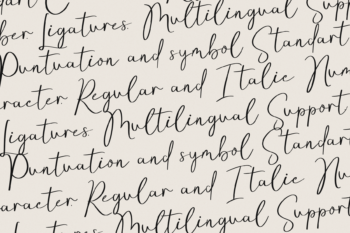 Multilingual Supp
ber Ligatures Multilingual Supp
Puntuation and symbol Standart
aracter Regular and Italic Num
Ligatures Multilingual Support
Puntuation and symbol Standart
aracter Regular and Italic Nu
Ligatures Multilingual Support